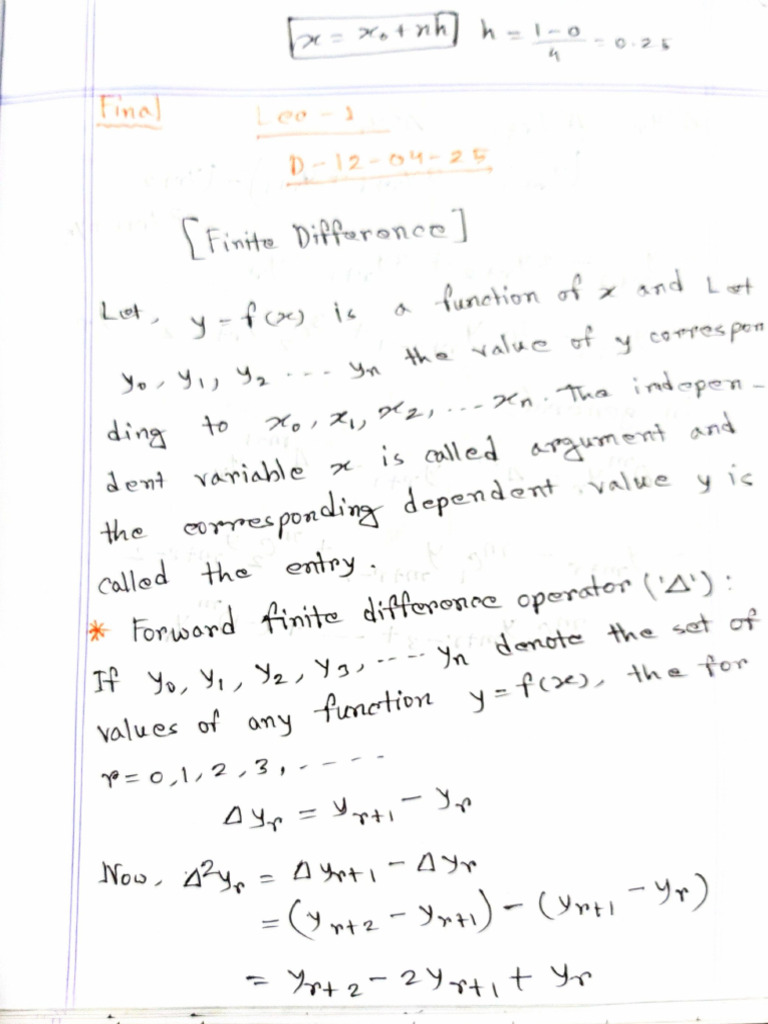 x = x₀ + nh h = (1-0)/4 = 0.25
Final Lec - 1
D - 12 - 04 - 25
[Finite Difference]
Let, y = f(x) is a function of x and Let
y₀, y₁, y₂ ... yₙ the value of y correspon
ding to x₀, x₁, x₂, ... xₙ. The indepen -
dent variable x is called argument and
the corresponding dependent value y is
called the entry.
* Forward finite difference operator ('Δ') :
If y₀, y₁, y₂, y₃, ..... yₙ denote the set of
values of any function y = f(x), the for
r = 0, 1, 2, 3, .....
Δyᵣ = yᵣ₊₁ - yᵣ
Now, Δ²yᵣ = Δyᵣ₊₁ - Δyᵣ
= (yᵣ₊₂ - yᵣ₊₁) - (yᵣ₊₁ - yᵣ)
= yᵣ₊₂ - 2yᵣ₊₁ + yᵣ